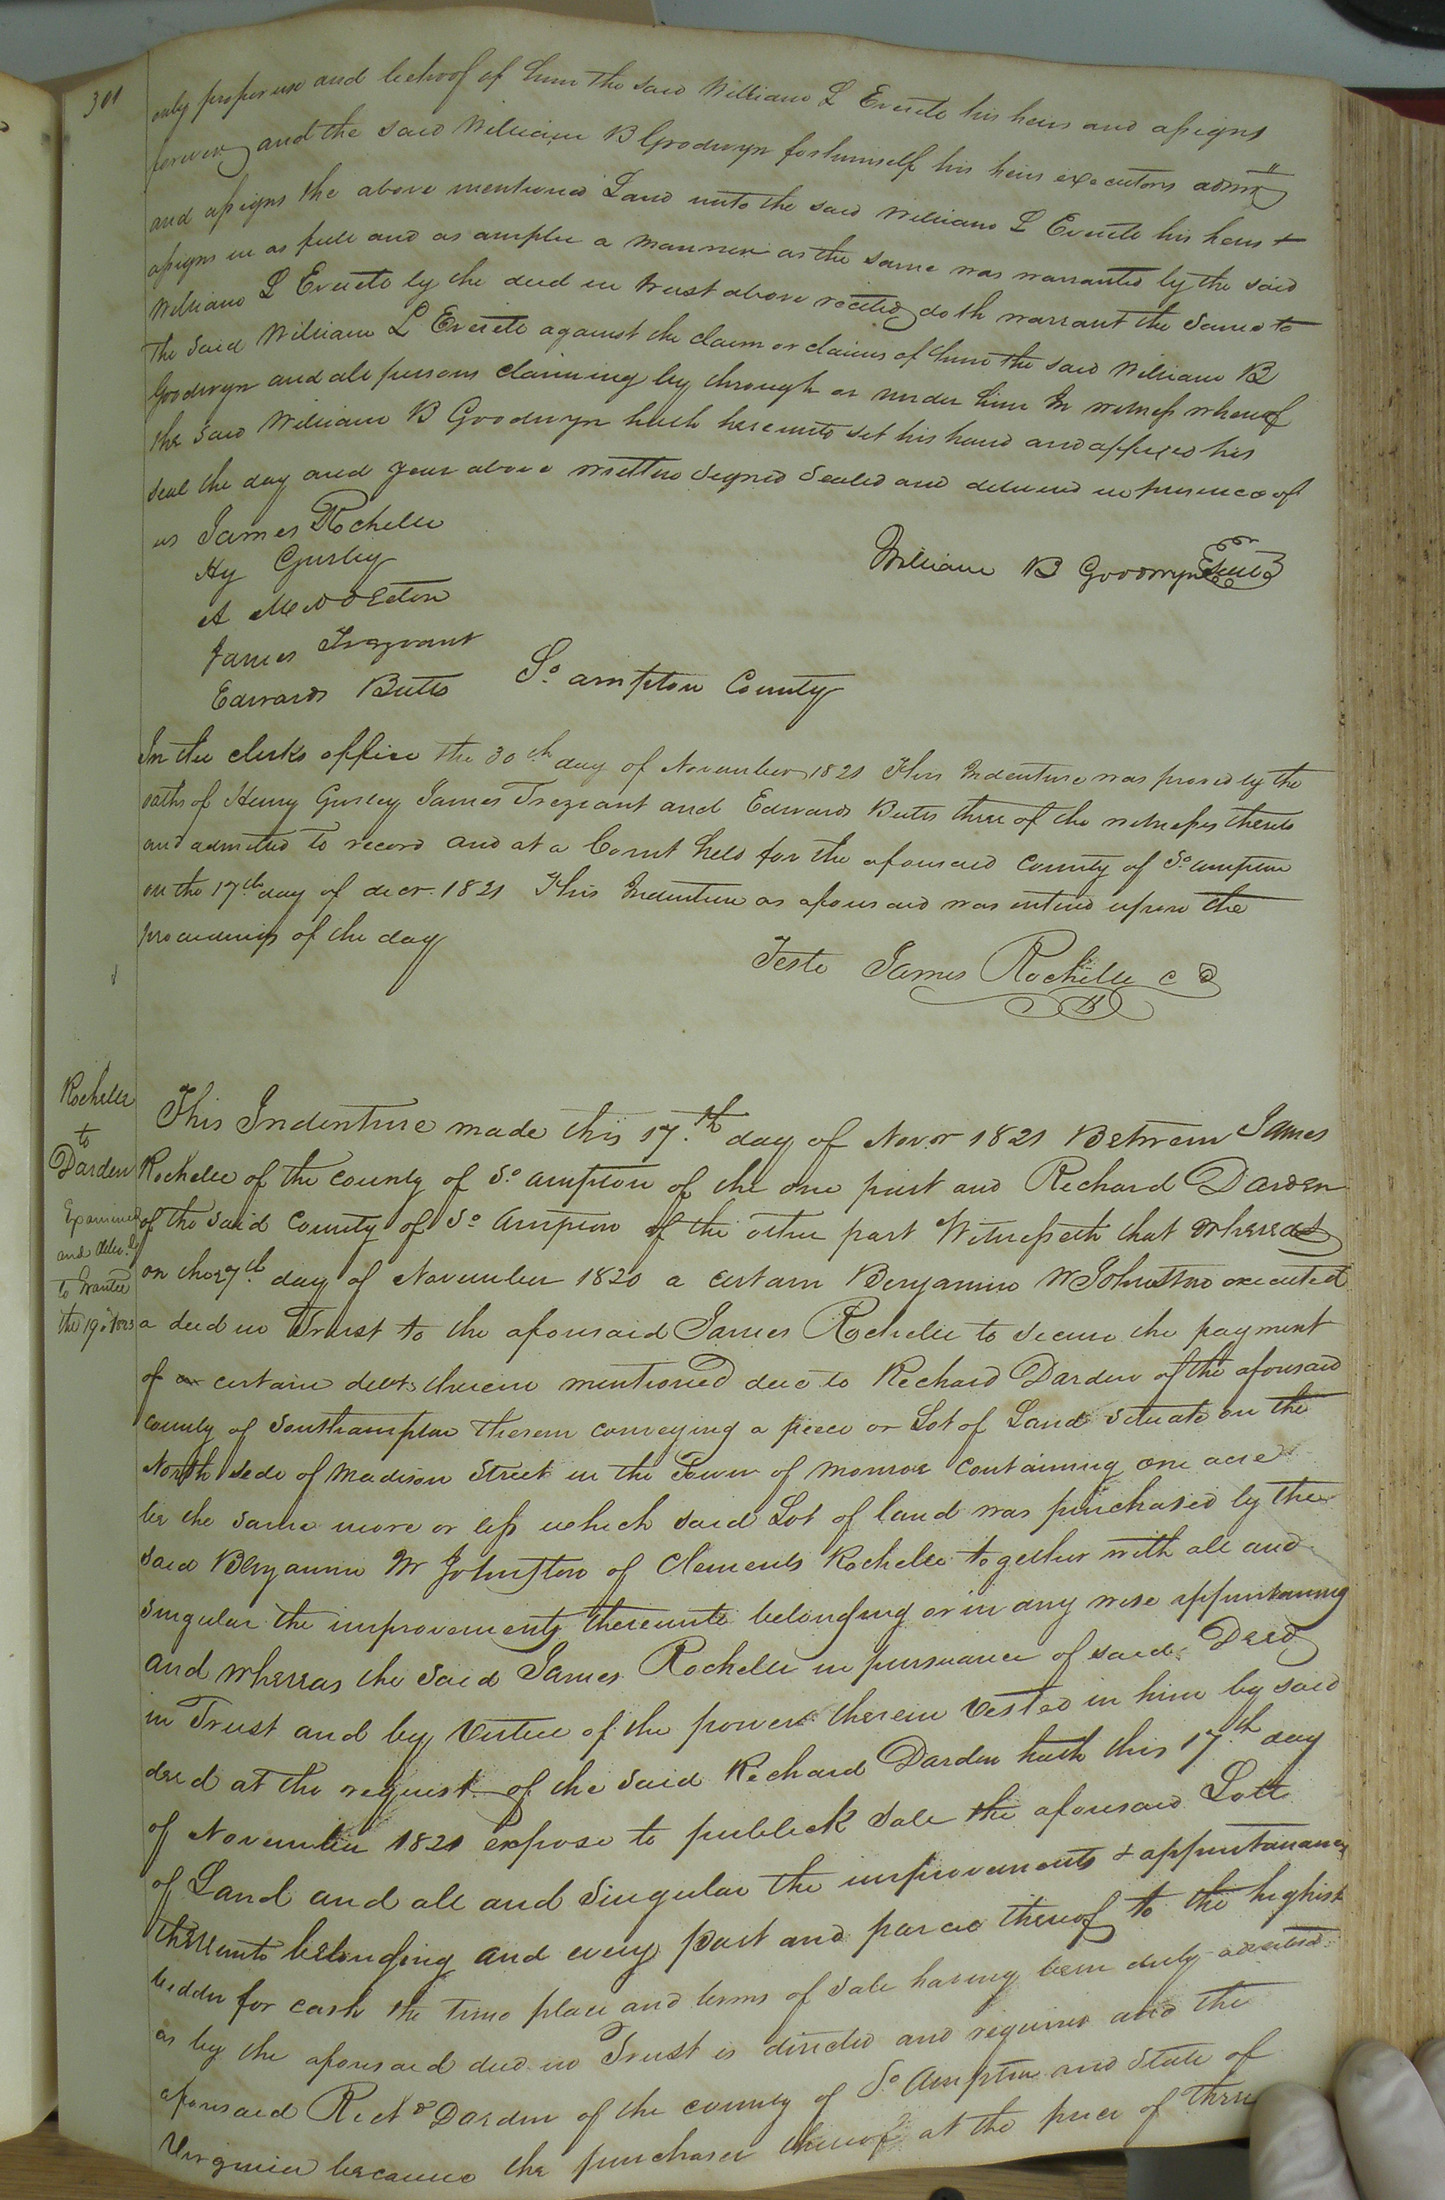 301
only proper use and behoof of him the said William L Everite his heirs and assigns
forever and the said William B Goodwyn for himself his heirs executors admrs
and assigns the above mentioned Land unto the said William L Everite his heirs &
assigns in as full and as ample a manner as the same was warranted by the said
William L Everite by the deed in trust above recited doth warrant the same to
the said William L Everite against the claim or claims of him the said William B
Goodwyn and all persons claiming by through or under him In witness whereof
the said William B Goodwyn hath hereunto set his hand and affixed his
seal the day and year above written Signed Sealed and delivered in presence of
us James Rochelle
William B Goodwyn Seal
Hy Gurley
A Middleton
James Trezvant
Edwards Butts
So. ampton County
In the clerks office the 30th day of November 1821 This Indenture was proved by the
oaths of Henry Gurley James Trezvant and Edwards Butts three of the witnesses thereto
and admitted to record and at a Court held for the aforesaid County of So. ampton
on the 17th day of decr. 1821 This Indenture as aforesaid was entered upon the
proceedings of the day
Teste James Rochelle C
Rochelle
to
Darden
Examined
and deliv.d
to Grantee
the 19
This Indenture made this 17.th day of Novr 1821 Between James
Rochelle of the county of So. ampton of the one part and Richard Darden
of the said County of So ampton of the other part Witnesseth that whereas
on the 27th. day of November 1820 a certain Benjamin W Johnston executed
a deed in Trust to the aforesaid James Rochelle to secure the payment
of certain debts therein mentioned due to Richard Darden of the aforesaid
County of Southampton therein conveying a piece or Lot of Land situate on the
North side of Madison Street in the Town of Monroe containing one acre
be the same more or less which said Lot of land was purchased by the
said Benjamin W Johnston of Clements Rochelle together with all and
singular the improvements thereunto belonging or in any wise appertaining
and whereas the said James Rochelle in pursuance of said Deed
in Trust and by virtue of the power therein vested in him by said
deed at the request of the said Richard Darden hath this 17.th day
of November 1821 expose to publick sale the aforesaid Lott
of Land and all and singular the improvements & appurtanances
thereunto belonging and every part and parcel thereof to the highest
bidder for cash the time place and terms of sale having been duly
as by the aforesaid deed in Trust is directed and required and the
aforesaid Richd Darden of the county of So. Ampton and State of
Virginia became the purchaser thereof at the price of three